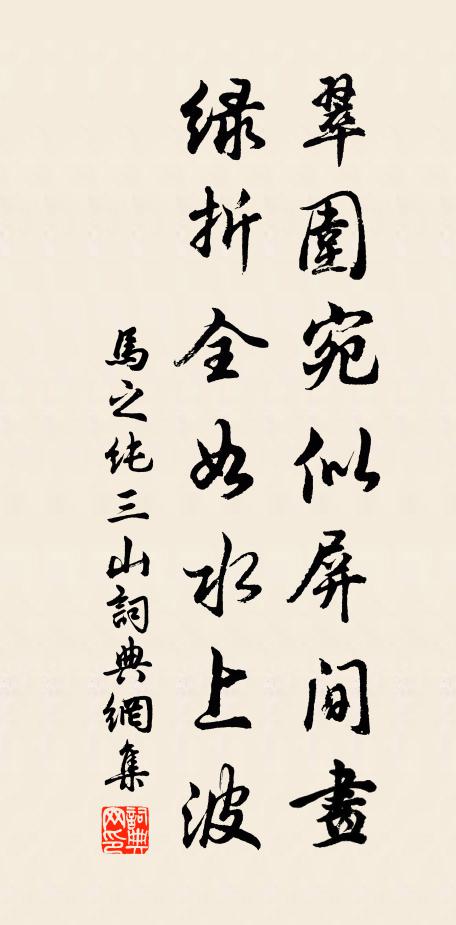 翠圍宛似屏間畫
緑折全如水上波
馬之純三山詞典網集
詞典网印